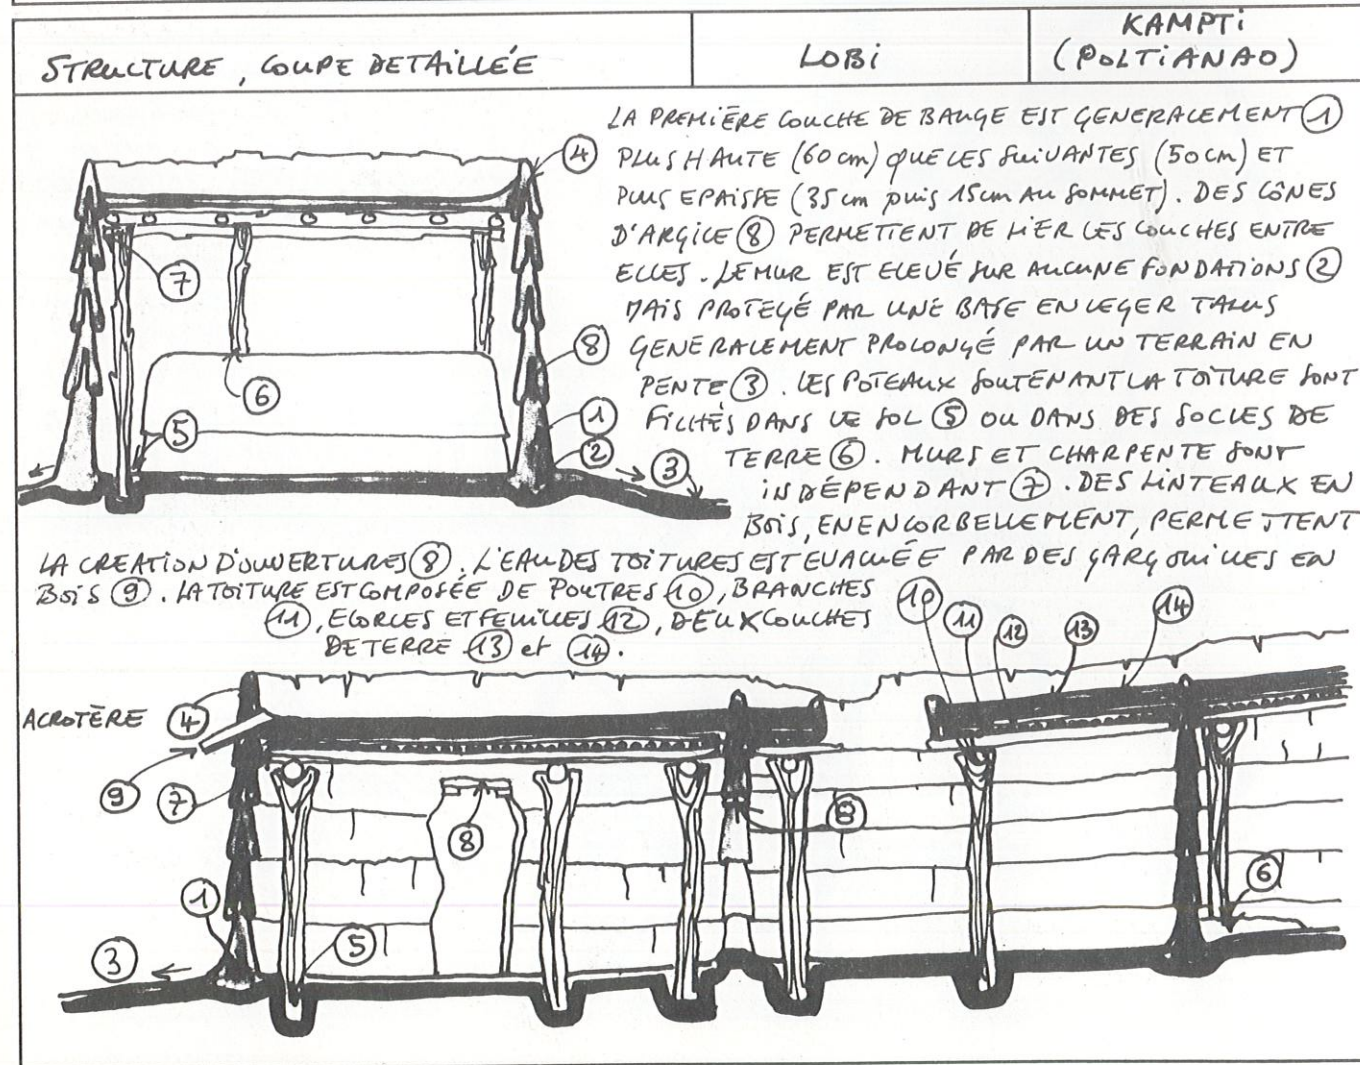 STRUCTURE, COUPE DETAILLÉE
LOBI
KAMPTI
(POLTIANAO)
LA PREMIÈRE COUCHE DE BAUGE EST GENERALEMENT 1
PLUS HAUTE (60 cm) QUE LES SUIVANTES (50 cm) ET
PLUS EPAISSE (35 cm puis 15 cm AU SOMMET). DES CÔNES
D'ARGILE 8 PERMETTENT DE LIER LES COUCHES ENTRE
ELLES. LE MUR EST ELEVÉ SUR AUCUNE FONDATIONS 2
MAIS PROTEGÉ PAR UNE BASE EN LEGER TALUS
GENERALEMENT PROLONGÉ PAR UN TERRAIN EN
PENTE 3. LES POTEAUX SOUTENANT LA TOITURE SONT
FICHÉS DANS LE SOL 5 OU DANS DES SOCLES DE
TERRE 6. MURS ET CHARPENTE SONT
INDÉPENDANT 7. DES LINTEAUX EN
BOIS, EN ENCORBELLEMENT, PERMETTENT
LA CREATION D'OUVERTURES 8. L'EAU DES TOITURES EST EVACUÉE PAR DES GARGOUILLES EN
BOIS 9. LA TOITURE EST COMPOSÉE DE POUTRES 10, BRANCHES
11, ECORCES ET FEUILLES 12, DEUX COUCHES
DE TERRE 13 et 14.
4
7
8
6
1
5
2
3
10
11
12
13
14
ACROTÈRE 4
9
7
8
8
6
1
5
3